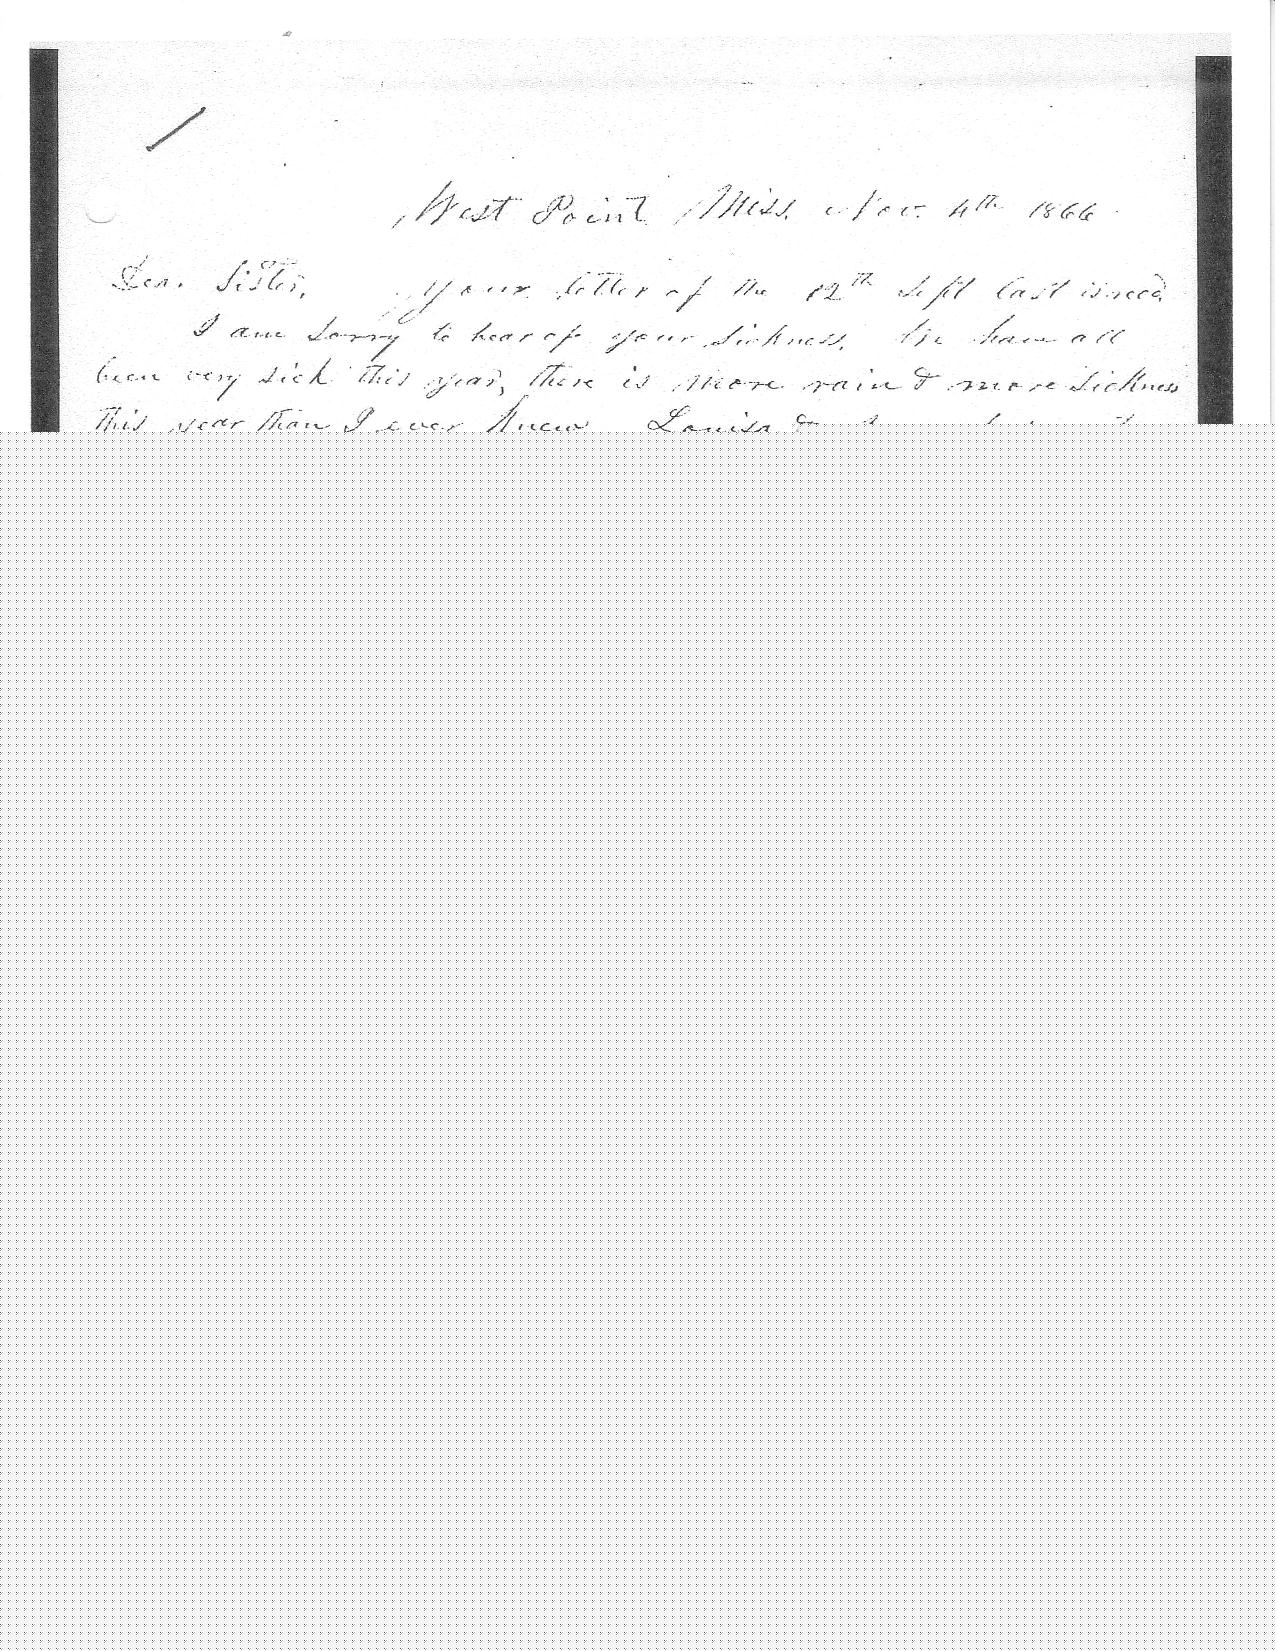 West Point Miss. Nov. 4th 1866
Dear Sister, Your letter of the 12th Sept last is recd
I am sorry to hear of your sickness. We have all
been very sick this year, there is more rain & more sickness
this year than I ever knew Louisa &